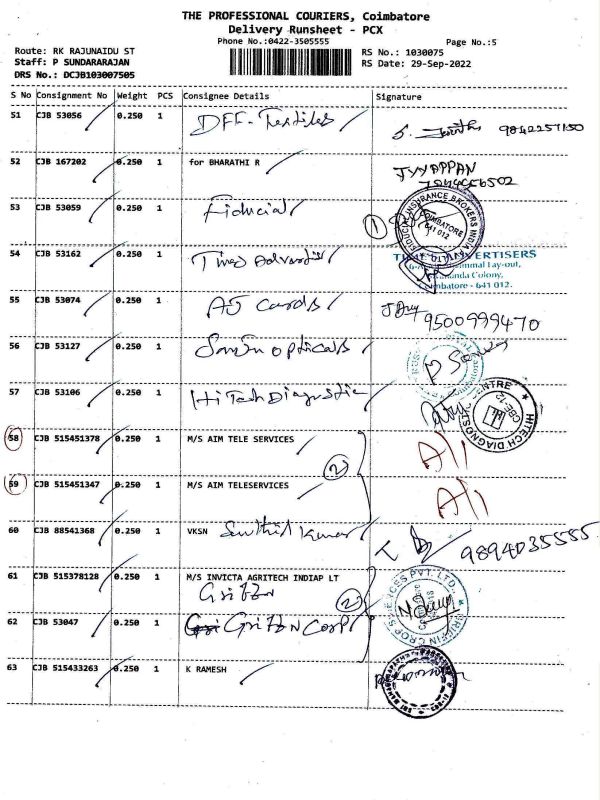 THE PROFESSIONAL COURIERS, Coimbatore
Delivery Runsheet - PCX
Phone No.:0422-3505555
Page No.:5
Route: RK RAJUNAIDU ST
RS No.: 1030075
Staff: P SUNDARARAJAN
RS Date: 29-Sep-2022
DRS No.: DCJB103007505
S No Consignment No Weight PCS Consignee Details Signature
51 CJB 53056 0.250 1 DFF-Textiles 9842257150
52 CJB 167202 0.250 1 for BHARATHI R IYYAPPAN
53 CJB 53059 0.250 1 Fiducial 1
FIDUCIAL INSURANCE BROKERS INDIA
COIMBATORE
641 012
54 CJB 53162 0.250 1 Times Advertiser
Colony,
Coimbatore - 641 012.
55 CJB 53074 0.250 1 AJ Cards 9500999470
56 CJB 53127 0.250 1 opticals
57 CJB 53106 0.250 1 HiTech Diagnostic
HITECH DIAGNOSTIC CENTRE
CBE-12
58 CJB 515451378 0.250 1 M/S AIM TELE SERVICES
2
59 CJB 515451347 0.250 1 M/S AIM TELESERVICES
60 CJB 88541368 0.250 1 VKSN Senthil Kumar 9894035555
61 CJB 515378128 0.250 1 M/S INVICTA AGRITECH INDIAP LT
Griffin
2
GRIFFIN CROP SCIENCES PVT. LTD.
62 CJB 53047 0.250 1 Griffin Corp
63 CJB 515433263 0.250 1 K RAMESH